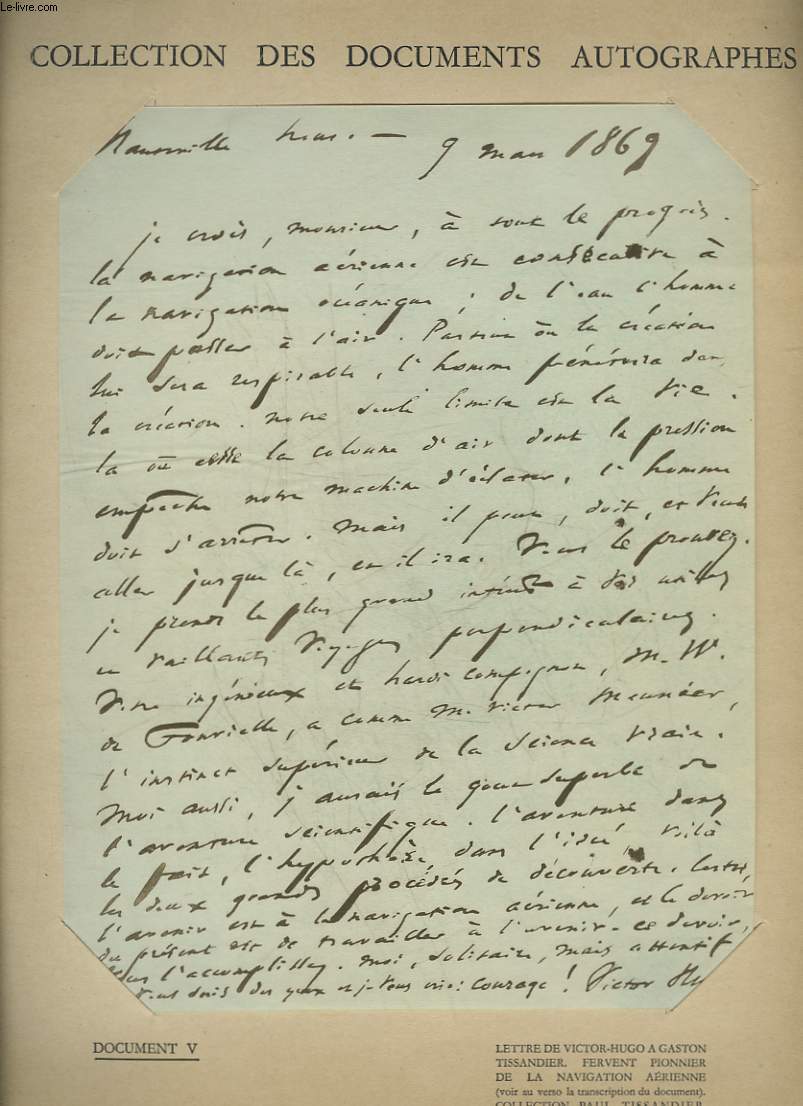 Le-livre.com
COLLECTION DES DOCUMENTS AUTOGRAPHES
Hauteville house. — 9 mars 1869
je crois, monsieur, à tout le progrès.
la navigation aérienne est consécutive à
la navigation océanique ; de l'eau l'homme
doit passer à l'air. Partout où la création
lui sera respirable, l'homme pénétrera dans
la création. notre seule limite est la vie.
là où cesse la colonne d'air dont la pression
empêche notre machine d'éclater, l'homme
doit s'arrêter. Mais il peut, doit, et veut
aller jusque là, et il ira. Vous le prouvez.
je prends le plus grand intérêt à vos utiles
et vaillants voyages perpendiculaires.
Votre ingénieux et hardi compagnon, M. W.
de Fonvielle, a comme M. Victor Meunier,
l'instinct supérieur de la science vraie.
Moi aussi, j'aurais le goût superbe de
l'aventure scientifique. l'aventure dans
le fait, l'hypothèse dans l'idée, voilà
les deux grands procédés de découverte. Certes,
l'avenir est à la navigation aérienne, et le devoir
du présent est de travailler à l'avenir. ce devoir,
vous l'accomplissez. Moi, solitaire, mais attentif
vous suis des yeux et je vous crie : courage ! Victor Hu
DOCUMENT V
LETTRE DE VICTOR-HUGO A GASTON
TISSANDIER, FERVENT PIONNIER
DE LA NAVIGATION AÉRIENNE
(voir au verso la transcription du document).
COLLECTION PAUL TISSANDIER.